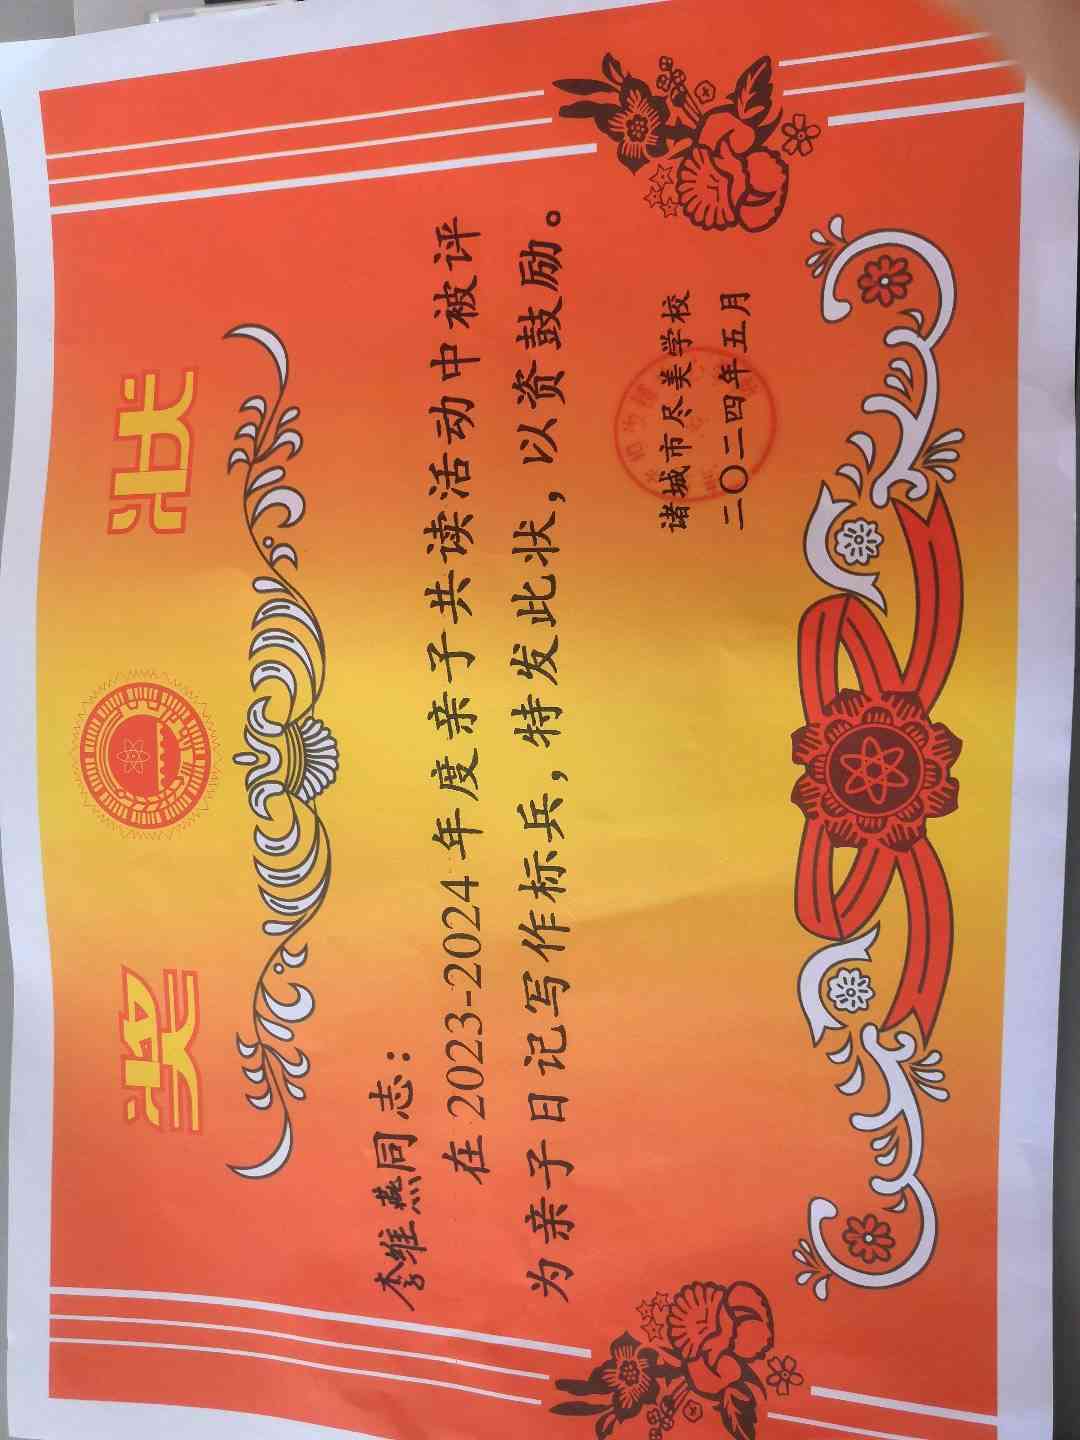 奖 状
李维燕同志：
在2023-2024年度亲子共读活动中被评
为亲子日记写作标兵，特发此状，以资鼓励。
诸城市尽美学校
二〇二四年五月